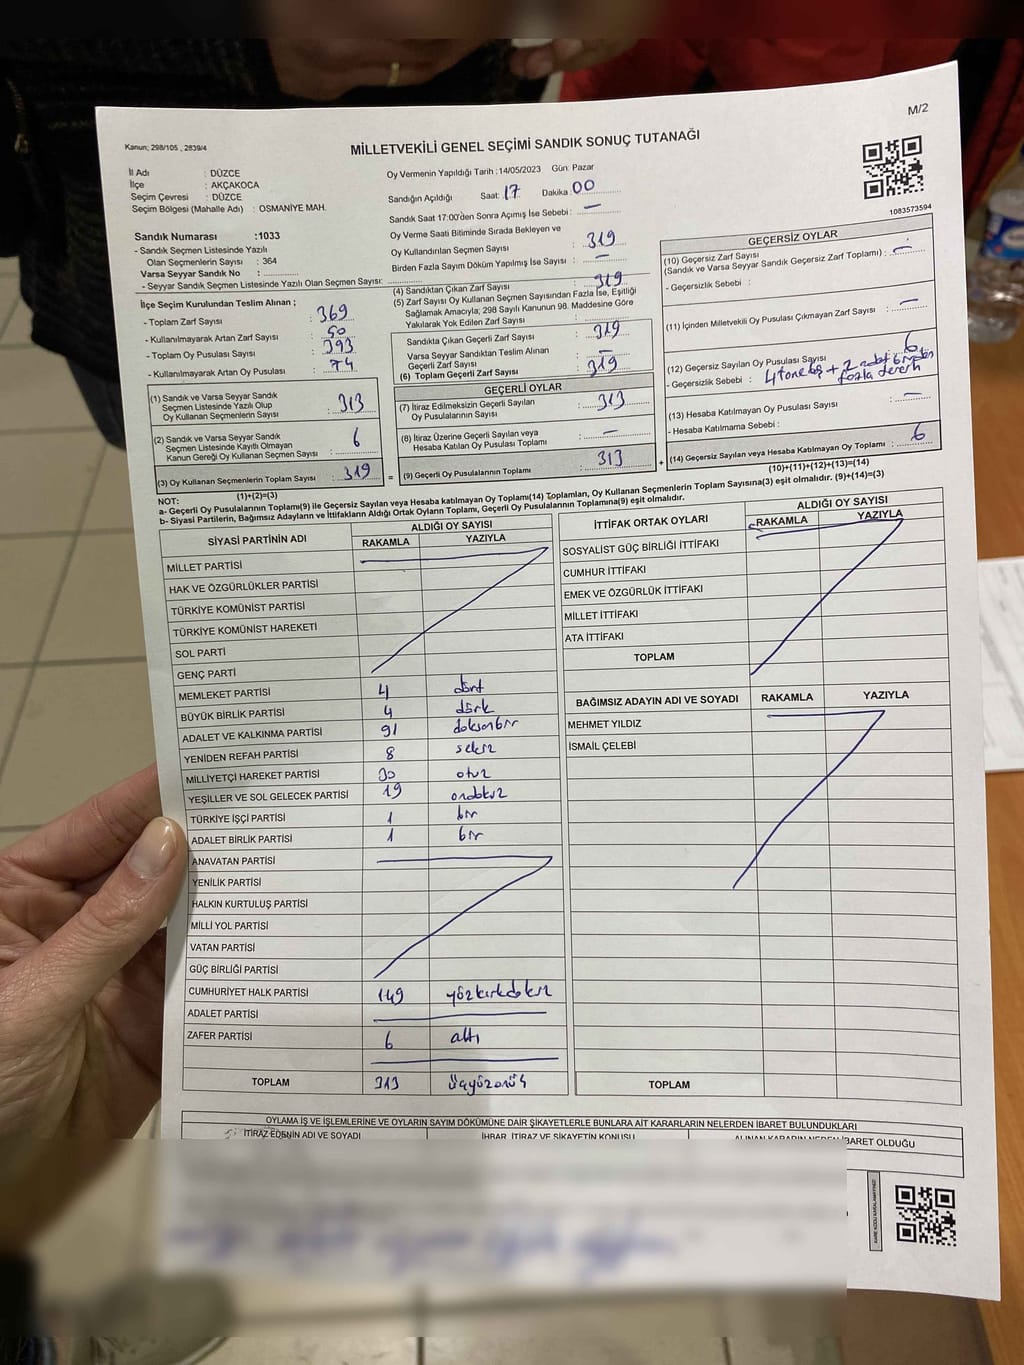 M/2
Kanun; 298/105 , 2839/4
MİLLETVEKİLİ GENEL SEÇİMİ SANDIK SONUÇ TUTANAĞI
İl Adı : DÜZCE
İlçe : AKÇAKOCA
Seçim Çevresi : DÜZCE
Seçim Bölgesi (Mahalle Adı) : OSMANİYE MAH.
Oy Vermenin Yapıldığı Tarih :14/05/2023 Gün: Pazar
Sandığın Açıldığı Saat: 17 Dakika 00
Sandık Saat 17:00'den Sonra Açımış İse Sebebi : —
Oy Verme Saati Bitiminde Sırada Bekleyen ve
Oy Kullandırılan Seçmen Sayısı : 319
Birden Fazla Sayım Döküm Yapılmış İse Sayısı : —
1083573594
Sandık Numarası :1033
- Sandık Seçmen Listesinde Yazılı
Olan Seçmenlerin Sayısı : 364
Varsa Seyyar Sandık No :
- Seyyar Sandık Seçmen Listesinde Yazılı Olan Seçmen Sayısı:
İlçe Seçim Kurulundan Teslim Alınan ;
- Toplam Zarf Sayısı : 369
- Kullanılmayarak Artan Zarf Sayısı : 50
- Toplam Oy Pusulası Sayısı : 393
- Kullanılmayarak Artan Oy Pusulası : 74
(1) Sandık ve Varsa Seyyar Sandık
Seçmen Listesinde Yazılı Olup
Oy Kullanan Seçmenlerin Sayısı : 313
(2) Sandık ve Varsa Seyyar Sandık
Seçmen Listesinde Kayıtlı Olmayan
Kanun Gereği Oy Kullanan Seçmen Sayısı : 6
(3) Oy Kullanan Seçmenlerin Toplam Sayısı : 319
(1)+(2)=(3)
(4) Sandıktan Çıkan Zarf Sayısı : 319
(5) Zarf Sayısı Oy Kullanan Seçmen Sayısından Fazla İse, Eşitliği
Sağlamak Amacıyla; 298 Sayılı Kanunun 98. Maddesine Göre
Yakılarak Yok Edilen Zarf Sayısı :
Sandıkta Çıkan Geçerli Zarf Sayısı : 319
Varsa Seyyar Sandıktan Teslim Alınan
Geçerli Zarf Sayısı : —
(6) Toplam Geçerli Zarf Sayısı : 319
GEÇERLİ OYLAR
(7) İtiraz Edilmeksizin Geçerli Sayılan
Oy Pusulalarının Sayısı : 313
(8) İtiraz Üzerine Geçerli Sayılan veya
Hesaba Katılan Oy Pusulası Toplamı : —
= (9) Geçerli Oy Pusulalarının Toplamı : 313
GEÇERSİZ OYLAR
(10) Geçersiz Zarf Sayısı
(Sandık ve Varsa Seyyar Sandık Geçersiz Zarf Toplamı) : —
- Geçersizlik Sebebi :
(11) İçinden Milletvekili Oy Pusulası Çıkmayan Zarf Sayısı : —
(12) Geçersiz Sayılan Oy Pusulası Sayısı : 6
- Geçersizlik Sebebi : 4 tane boş + 2 adet birden
fazla
(13) Hesaba Katılmayan Oy Pusulası Sayısı : —
- Hesaba Katılmama Sebebi :
+ (14) Geçersiz Sayılan veya Hesaba Katılmayan Oy Toplamı : 6
(10)+(11)+(12)+(13)=(14)
NOT:
a- Geçerli Oy Pusulalarının Toplamı(9) ile Geçersiz Sayılan veya Hesaba katılmayan Oy Toplamı(14) Toplamları, Oy Kullanan Seçmenlerin Toplam Sayısına(3) eşit olmalıdır. (9)+(14)=(3)
b- Siyasi Partilerin, Bağımsız Adayların ve İttifakların Aldığı Ortak Oyların Toplamı, Geçerli Oy Pusulalarının Toplamına(9) eşit olmalıdır.
SİYASİ PARTİNİN ADI ALDIĞI OY SAYISI
RAKAMLA YAZIYLA
MİLLET PARTİSİ
HAK VE ÖZGÜRLÜKLER PARTİSİ
TÜRKİYE KOMÜNİST PARTİSİ
TÜRKİYE KOMÜNİST HAREKETİ
SOL PARTİ
GENÇ PARTİ
MEMLEKET PARTİSİ 4 dört
BÜYÜK BİRLİK PARTİSİ 4 dört
ADALET VE KALKINMA PARTİSİ 91 doksanbir
YENİDEN REFAH PARTİSİ 8 sekiz
MİLLİYETÇİ HAREKET PARTİSİ 30 otuz
YEŞİLLER VE SOL GELECEK PARTİSİ 19 ondokuz
TÜRKİYE İŞÇİ PARTİSİ 1 bir
ADALET BİRLİK PARTİSİ 1 bir
ANAVATAN PARTİSİ
YENİLİK PARTİSİ
HALKIN KURTULUŞ PARTİSİ
MİLLİ YOL PARTİSİ
VATAN PARTİSİ
GÜÇ BİRLİĞİ PARTİSİ
CUMHURİYET HALK PARTİSİ 149 yüzkırkdokuz
ADALET PARTİSİ
ZAFER PARTİSİ 6 altı
TOPLAM 313 üçyüzonüç
İTTİFAK ORTAK OYLARI ALDIĞI OY SAYISI
RAKAMLA YAZIYLA
SOSYALİST GÜÇ BİRLİĞİ İTTİFAKI
CUMHUR İTTİFAKI
EMEK VE ÖZGÜRLÜK İTTİFAKI
MİLLET İTTİFAKI
ATA İTTİFAKI
TOPLAM
BAĞIMSIZ ADAYIN ADI VE SOYADI RAKAMLA YAZIYLA
MEHMET YILDIZ
İSMAİL ÇELEBİ
TOPLAM
OYLAMA İŞ VE İŞLEMLERİNE VE OYLARIN SAYIM DÖKÜMÜNE DAİR ŞİKAYETLERLE BUNLARA AİT KARARLARIN NELERDEN İBARET BULUNDUKLARI
İTİRAZ EDENİN ADI VE SOYADI İHBAR, İTİRAZ VE ŞİKAYETİN KONUSU ALINAN KARARIN NEDEN İBARET OLDUĞU